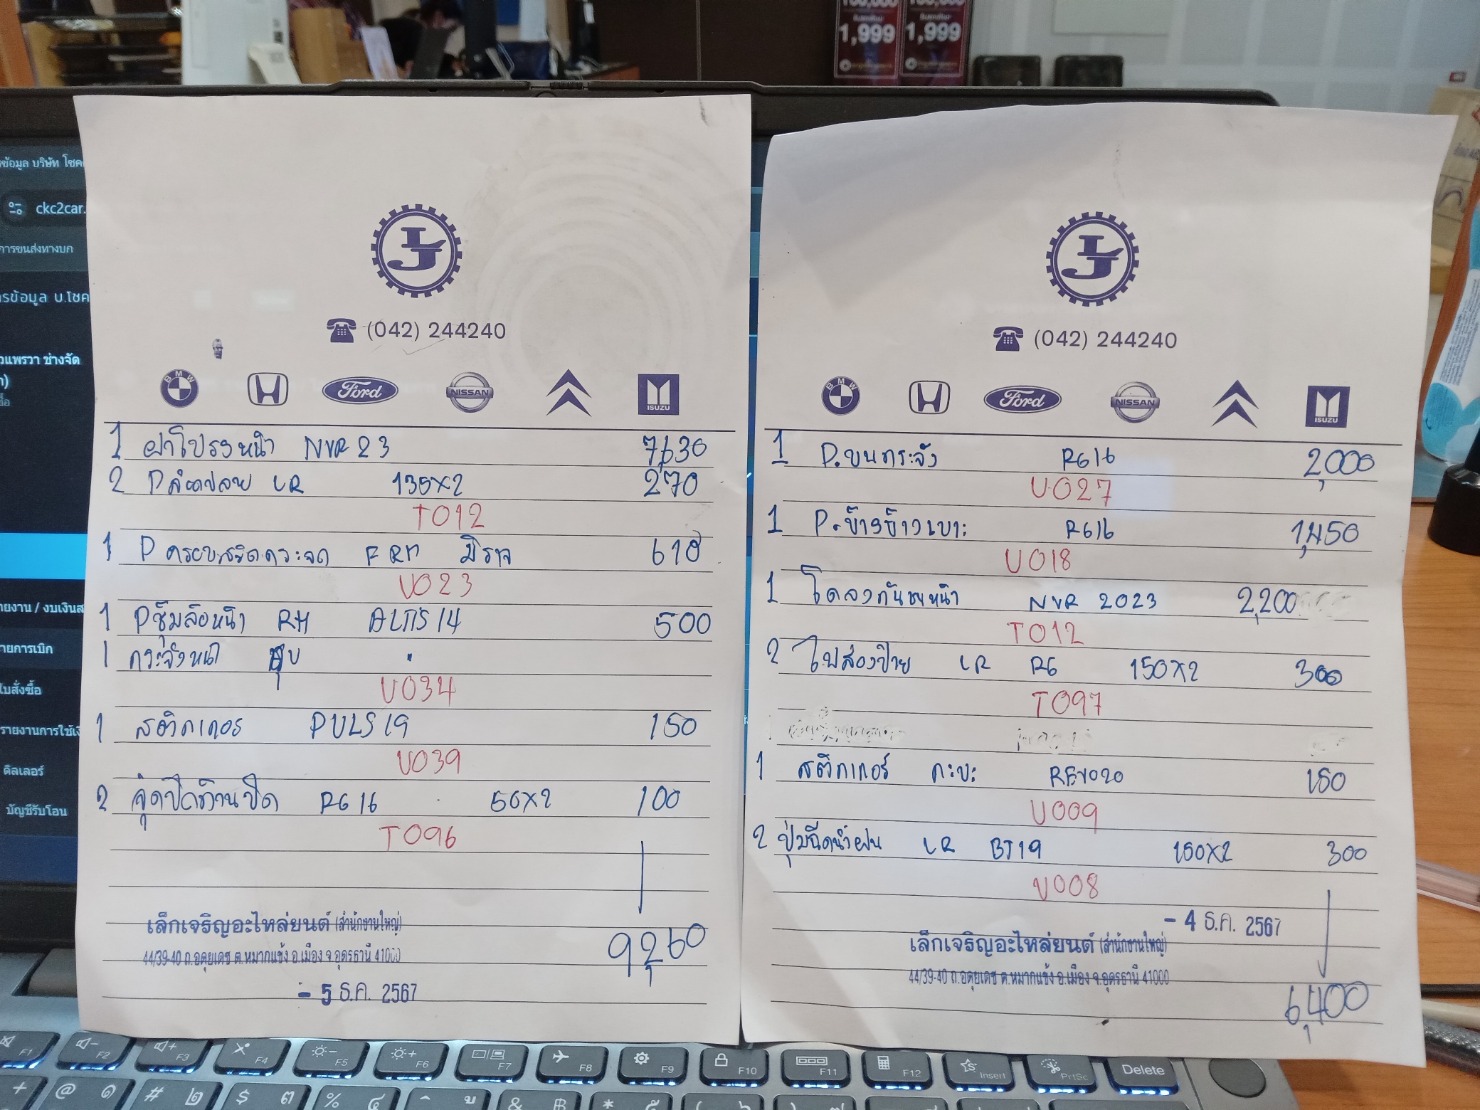 1,999
1,999
ข้อมูล บริษัท โชค
ckc2car.
การขนส่งทางบก
บ.โชค
แพรวา ช่างจัด
รายงาน / งบเงินส
รายการเบิก
ใบสั่งซื้อ
รายงานการใช้เ
ดีลเลอร์
บัญชีรับโอน
LJ
(042) 244240
BMW
H
Ford
NISSAN
ISUZU
1 ฝาโปรงหน้า NVR 23 7,630
2 LR 135X2 270
T012
1 P FRH มิราจ 610
U023
1 Pซุ้มล้อหน้า RH ALTIS 14 500
1 กระจังหน้า
U034
1 สติกเกอร PULS 19 150
U039
2 RG 16 50X2 100
T096
9,260
เล็กเจริญอะไหล่ยนต์ (สำนักงานใหญ่)
44/39-40 ถ.อดุยเดช ต.หมากแข้ง อ.เมือง จ.อุดรธานี 41000
- 5 ธ.ค. 2567
LJ
(042) 244240
BMW
H
Ford
NISSAN
ISUZU
1 P.บนกระจัง RG16 2,000
U027
1 P.ข้าง RG16 1,450
U018
1 กันชนหน้า NVR 2023 2,200
T012
2 LR RG 150X2 300
T097
1 สติกเกอร์ กะบะ REVO20 150
U009
2 ปุ่มฉีดน้ำฝน LR BT19 150X2 300
U008
- 4 ธ.ค. 2567
เล็กเจริญอะไหล่ยนต์ (สำนักงานใหญ่)
44/39-40 ถ.อดุยเดช ต.หมากแข้ง อ.เมือง จ.อุดรธานี 41000
6,400
F1 F2 F3 F4 F5 F6 F7 F8 F9 F10 F11 F12 Insert PrtSc Delete